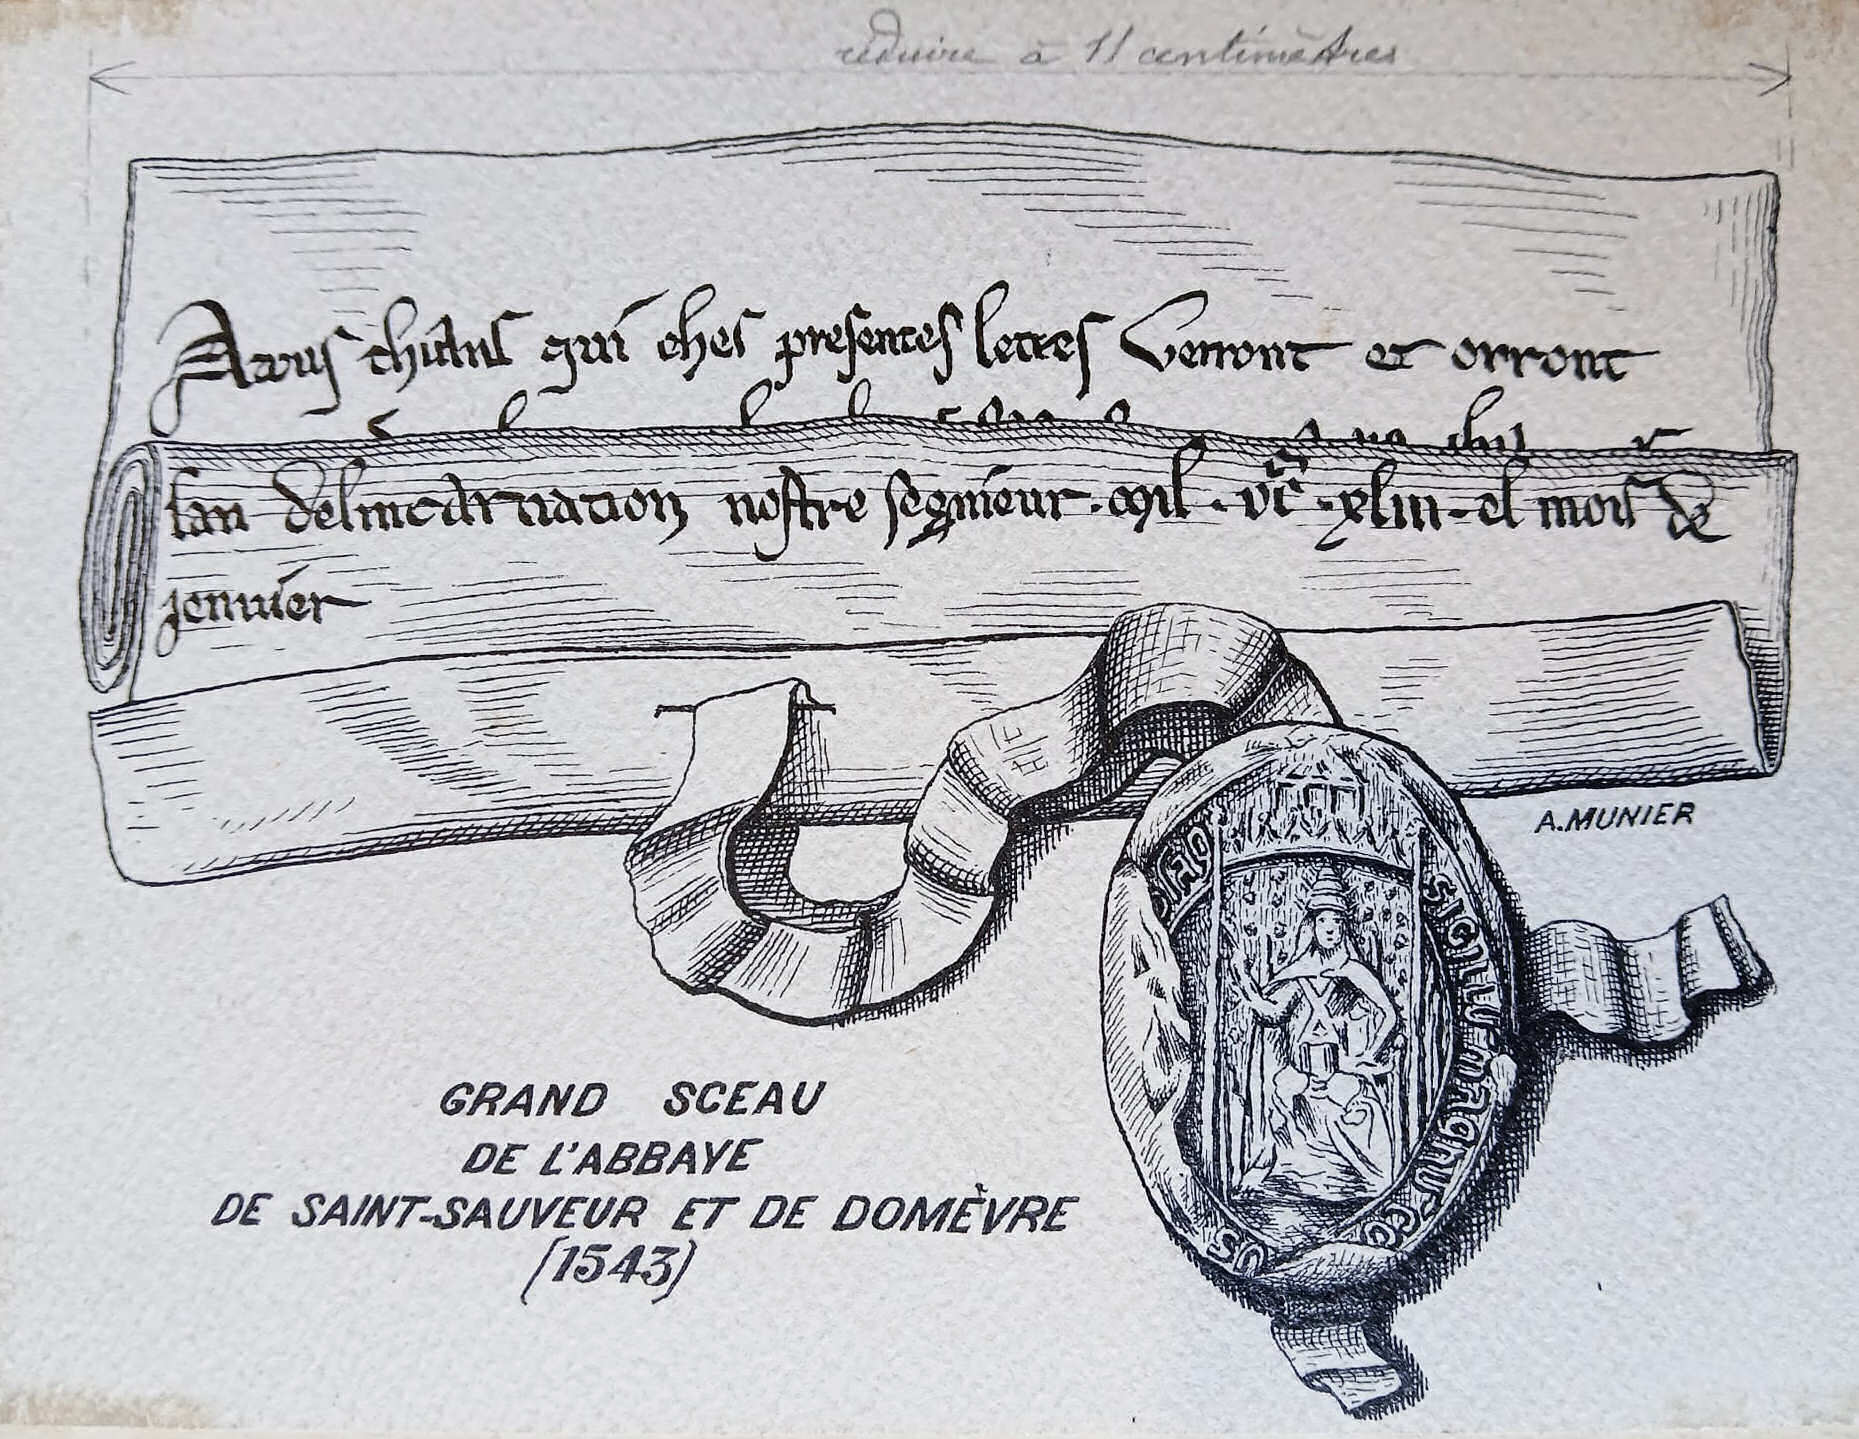 réduire à 11 centimètres
A tous chiaus qui ches presentes lettres verront et orront
lan delincarnation nostre segnieur · mil · vc · xliii · el mois de
jenvier
A. MUNIER
SIGILLU MAGNU CO
US
GRAND SCEAU
DE L'ABBAYE
DE SAINT-SAUVEUR ET DE DOMÈVRE
(1543)